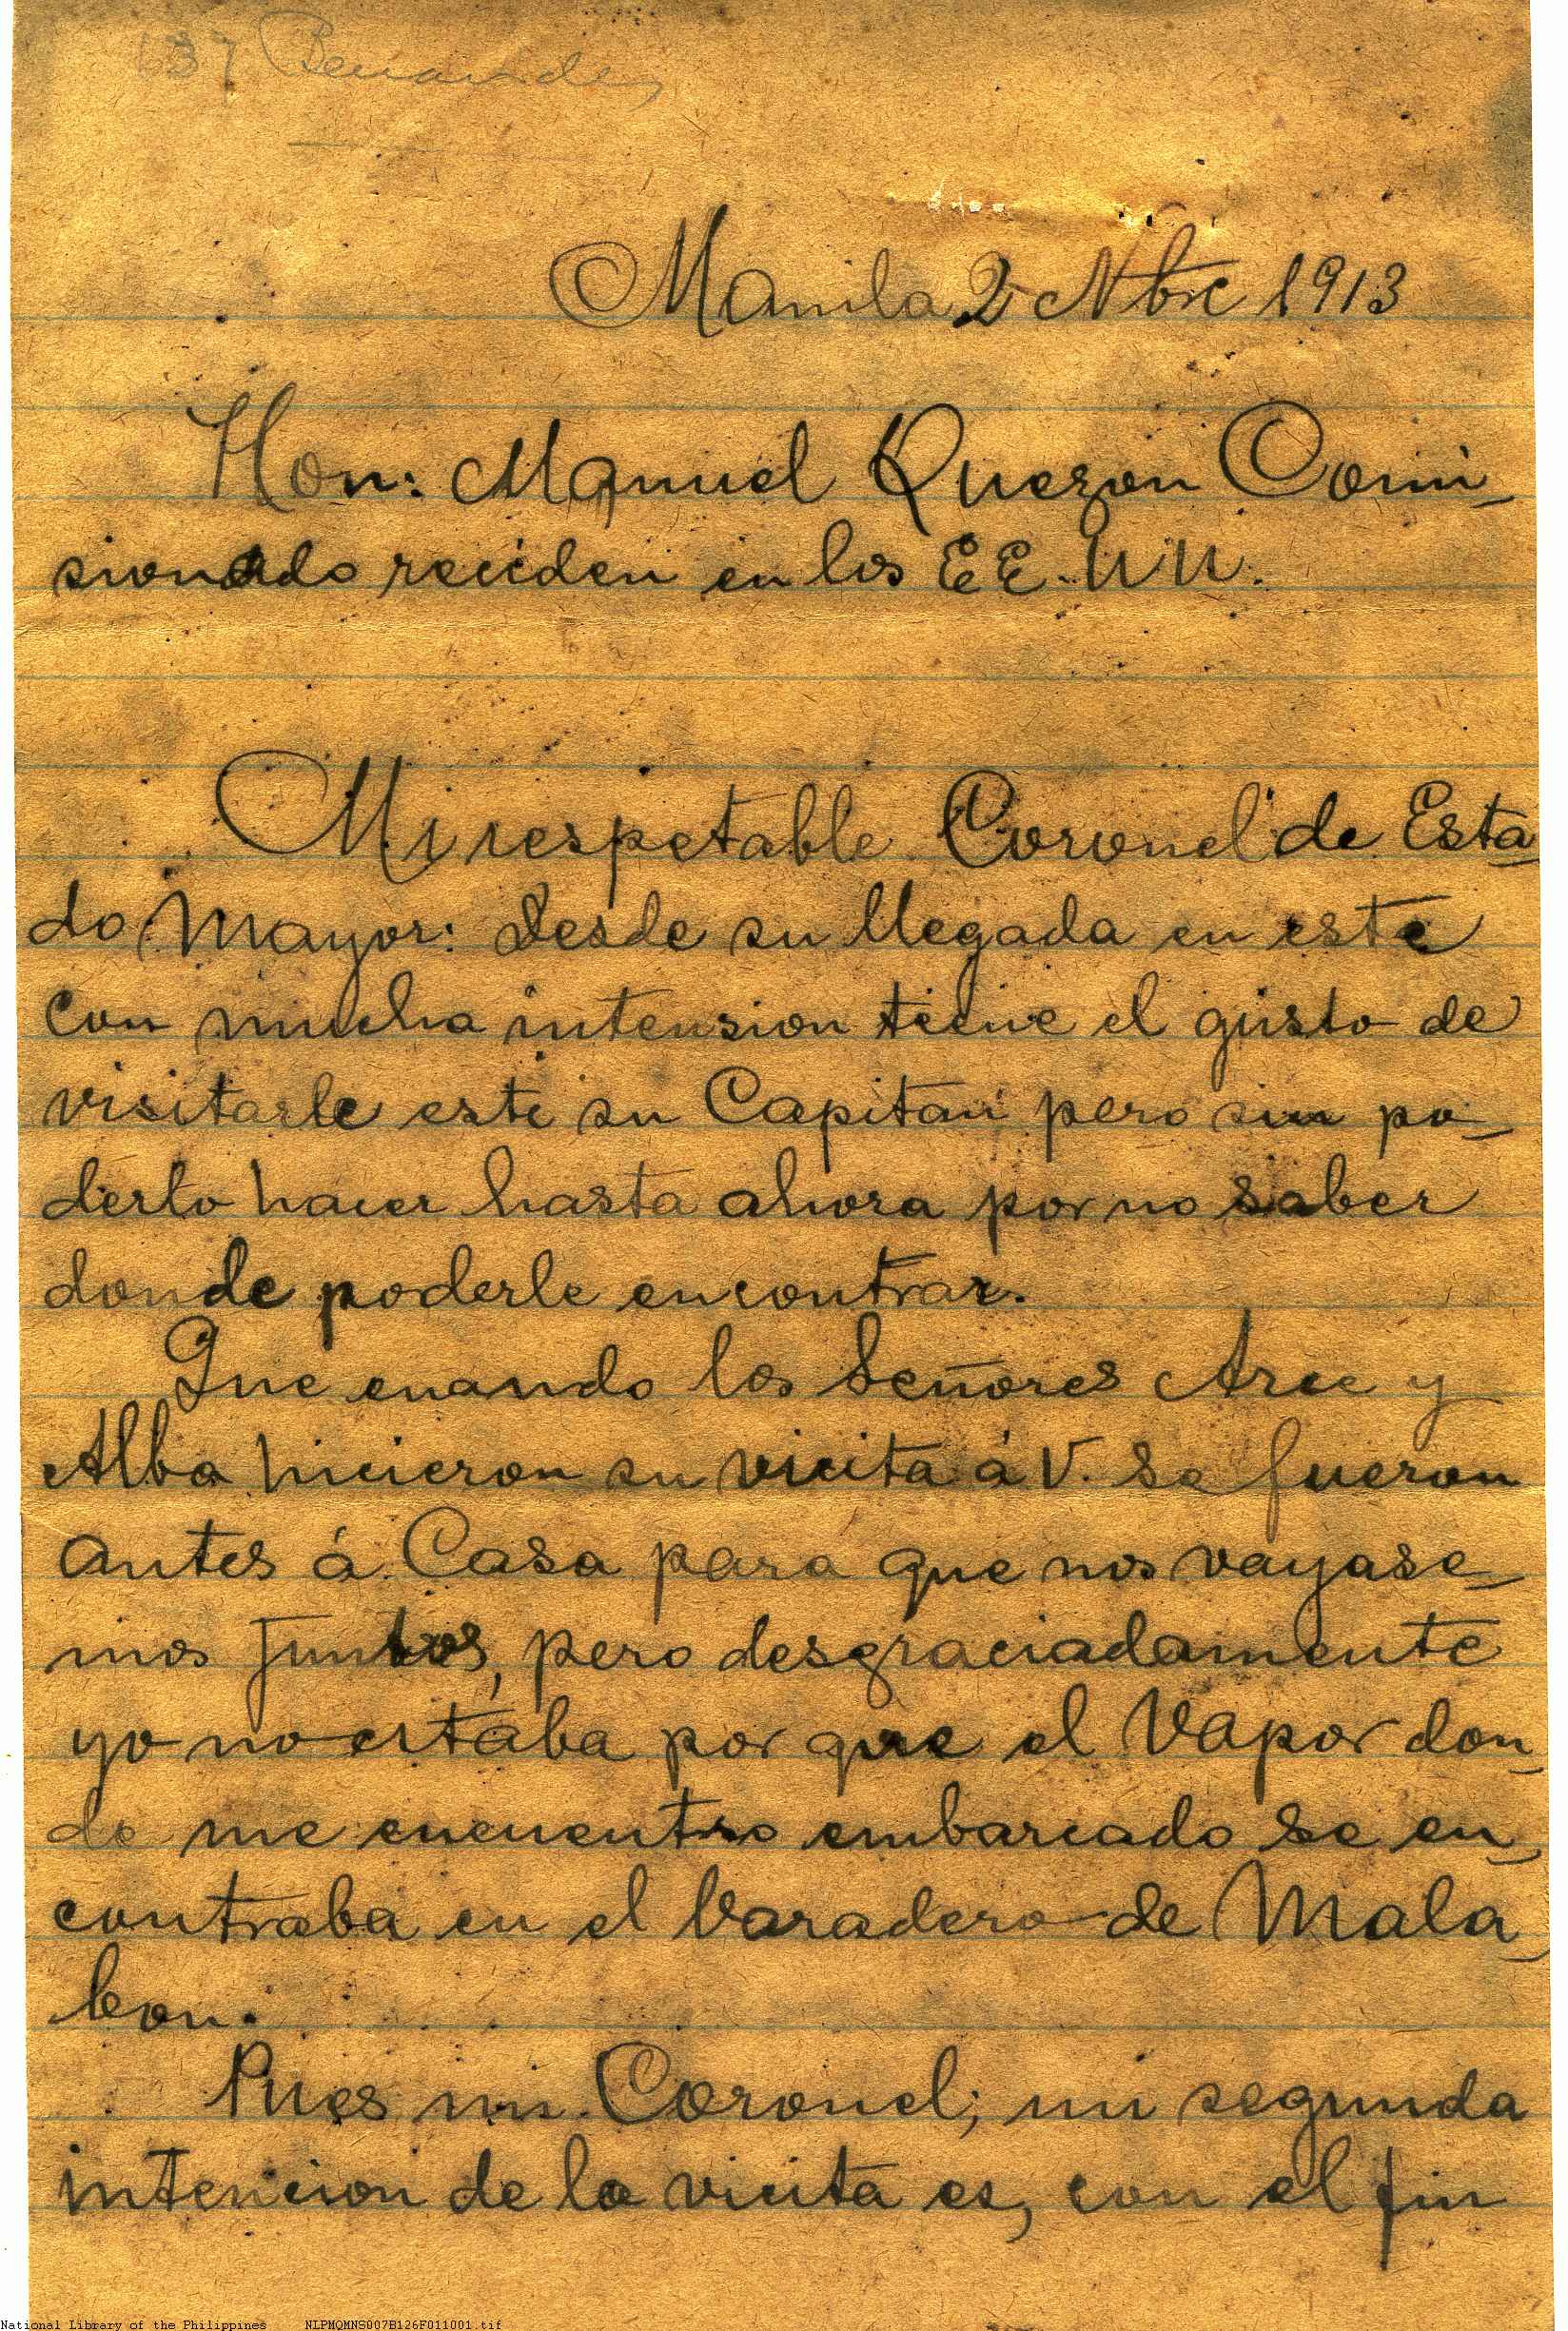 137
Manila 2 Nbre 1913
Hon: Manuel Quezon Comi-
sionado reciden en los EE. UU.
Mi respetable Coronel de Esta-
do Mayor: desde su llegada en este
con mucha intension tiene el gusto de
visitarle este su Capitan pero sin po-
derlo hacer hasta ahora por no saber
donde poderle encontrar.
Que cuando los Señores Arce y
Alba hicieron su vicita á V. se fueron
antes á Casa para que nos vayase-
mos juntos, pero desgraciadamente
yo no estaba por que el Vapor don-
de me encuentro embarcado se en-
contraba en el Varadero de Mala-
bon.
Pues mi Coronel; mi segunda
intencion de la vicita es, con el fin
National Library of the Philippines NLPMQMNS007B126F011001.tif